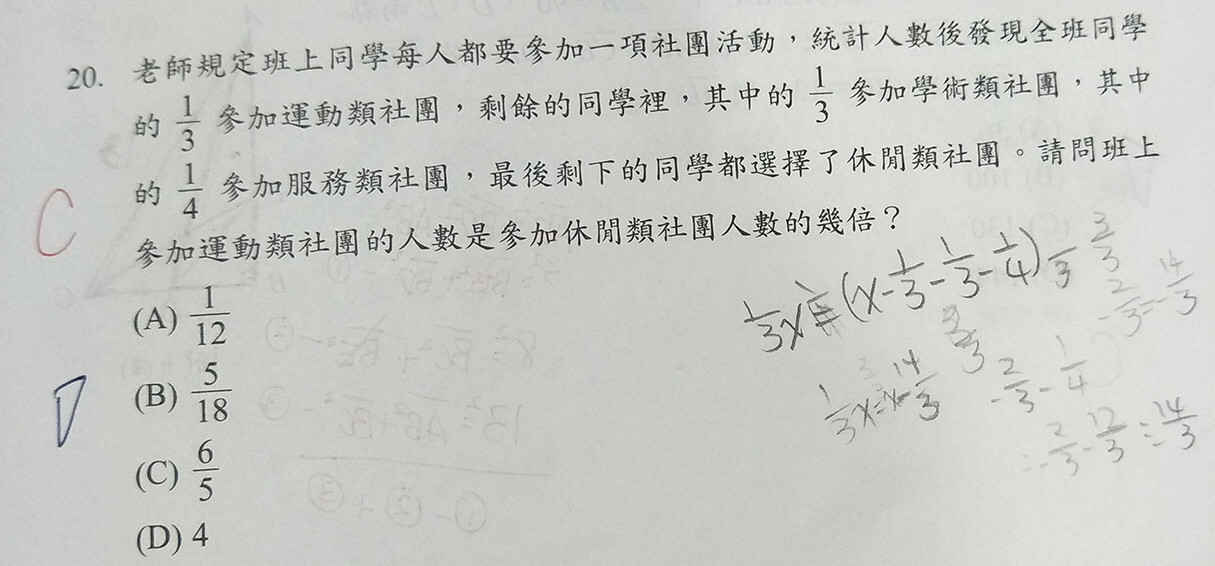 20. 老師規定班上同學每人都要參加一項社團活動，統計人數後發現全班同學
的 1/3 參加運動類社團，剩餘的同學裡，其中的 1/3 參加學術類社團，其中
的 1/4 參加服務類社團，最後剩下的同學都選擇了休閒類社團。請問班上
參加運動類社團的人數是參加休閒類社團人數的幾倍？
C
(A) 1/12
(B) 5/18
(C) 6/5
(D) 4
D
1/3x (x-1/3-1/3-1/4)
1/3 2/3
-2/3=-14/3
1/3x=x-14/3
-2/3-1/4
-2/3-12/3=14/3